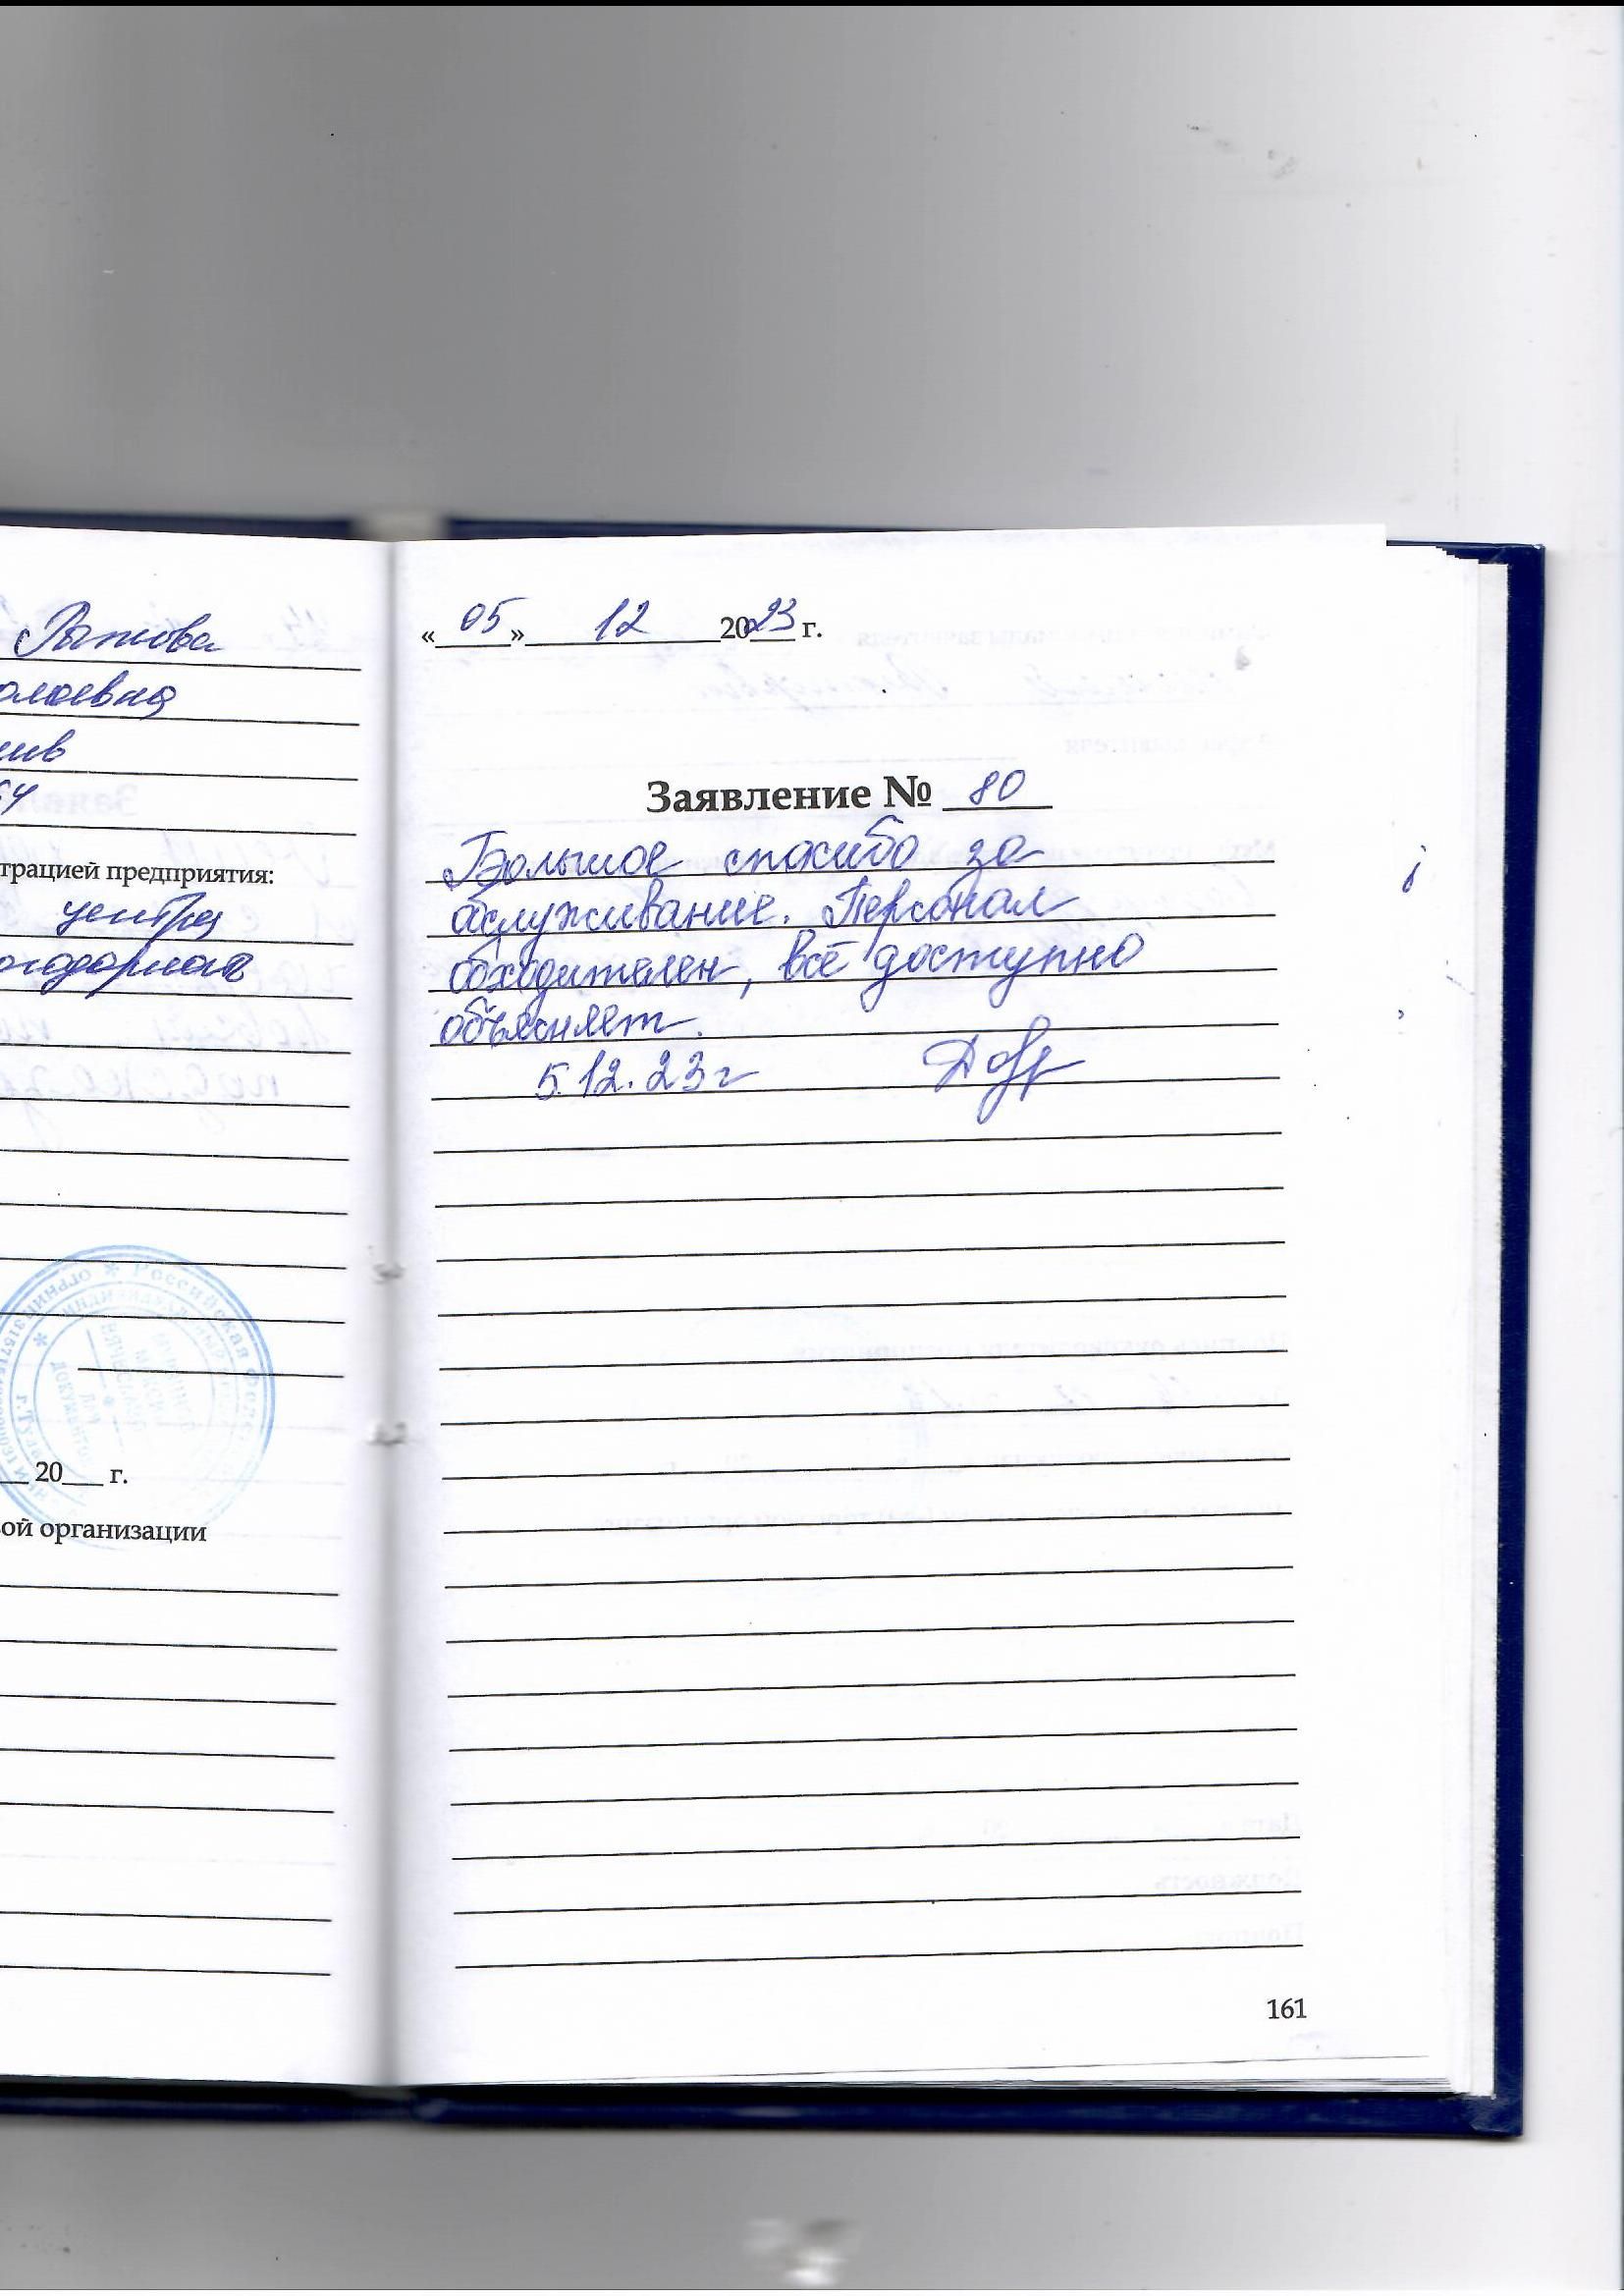 Рыжова
олаевна
трацией предприятия:
центра
___ 20___ г.
ой организации
« 05 » 12 2023 г.
Заявление № 80
Большое спасибо за
обслуживание. Персонал
обходителен, всё доступно
объясняет.
5.12.23г
161